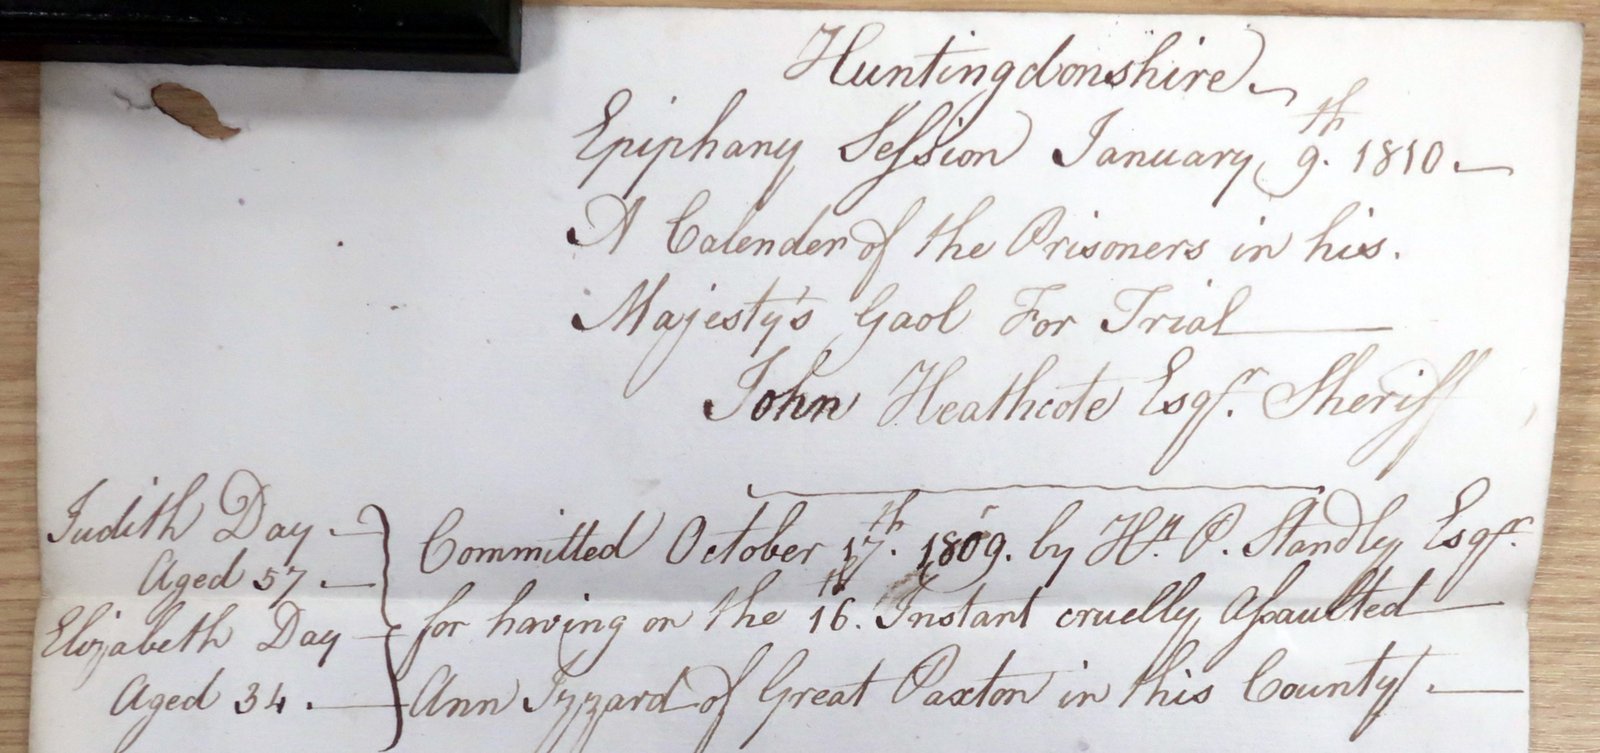 Huntingdonshire
Epiphany Session January 9th. 1810
A Calender of the Prisoners in his.
Majesty's Gaol For Trial
John Heathcote Esqr. Sheriff
Judith Day
Aged 57
Elizabeth Day
Aged 34.
Committed October 17th. 1809. by Hy. P. Standly Esqr.
for having on the 16th. Instant cruelly Assaulted
Ann Izzard of Great Paxton in this County.